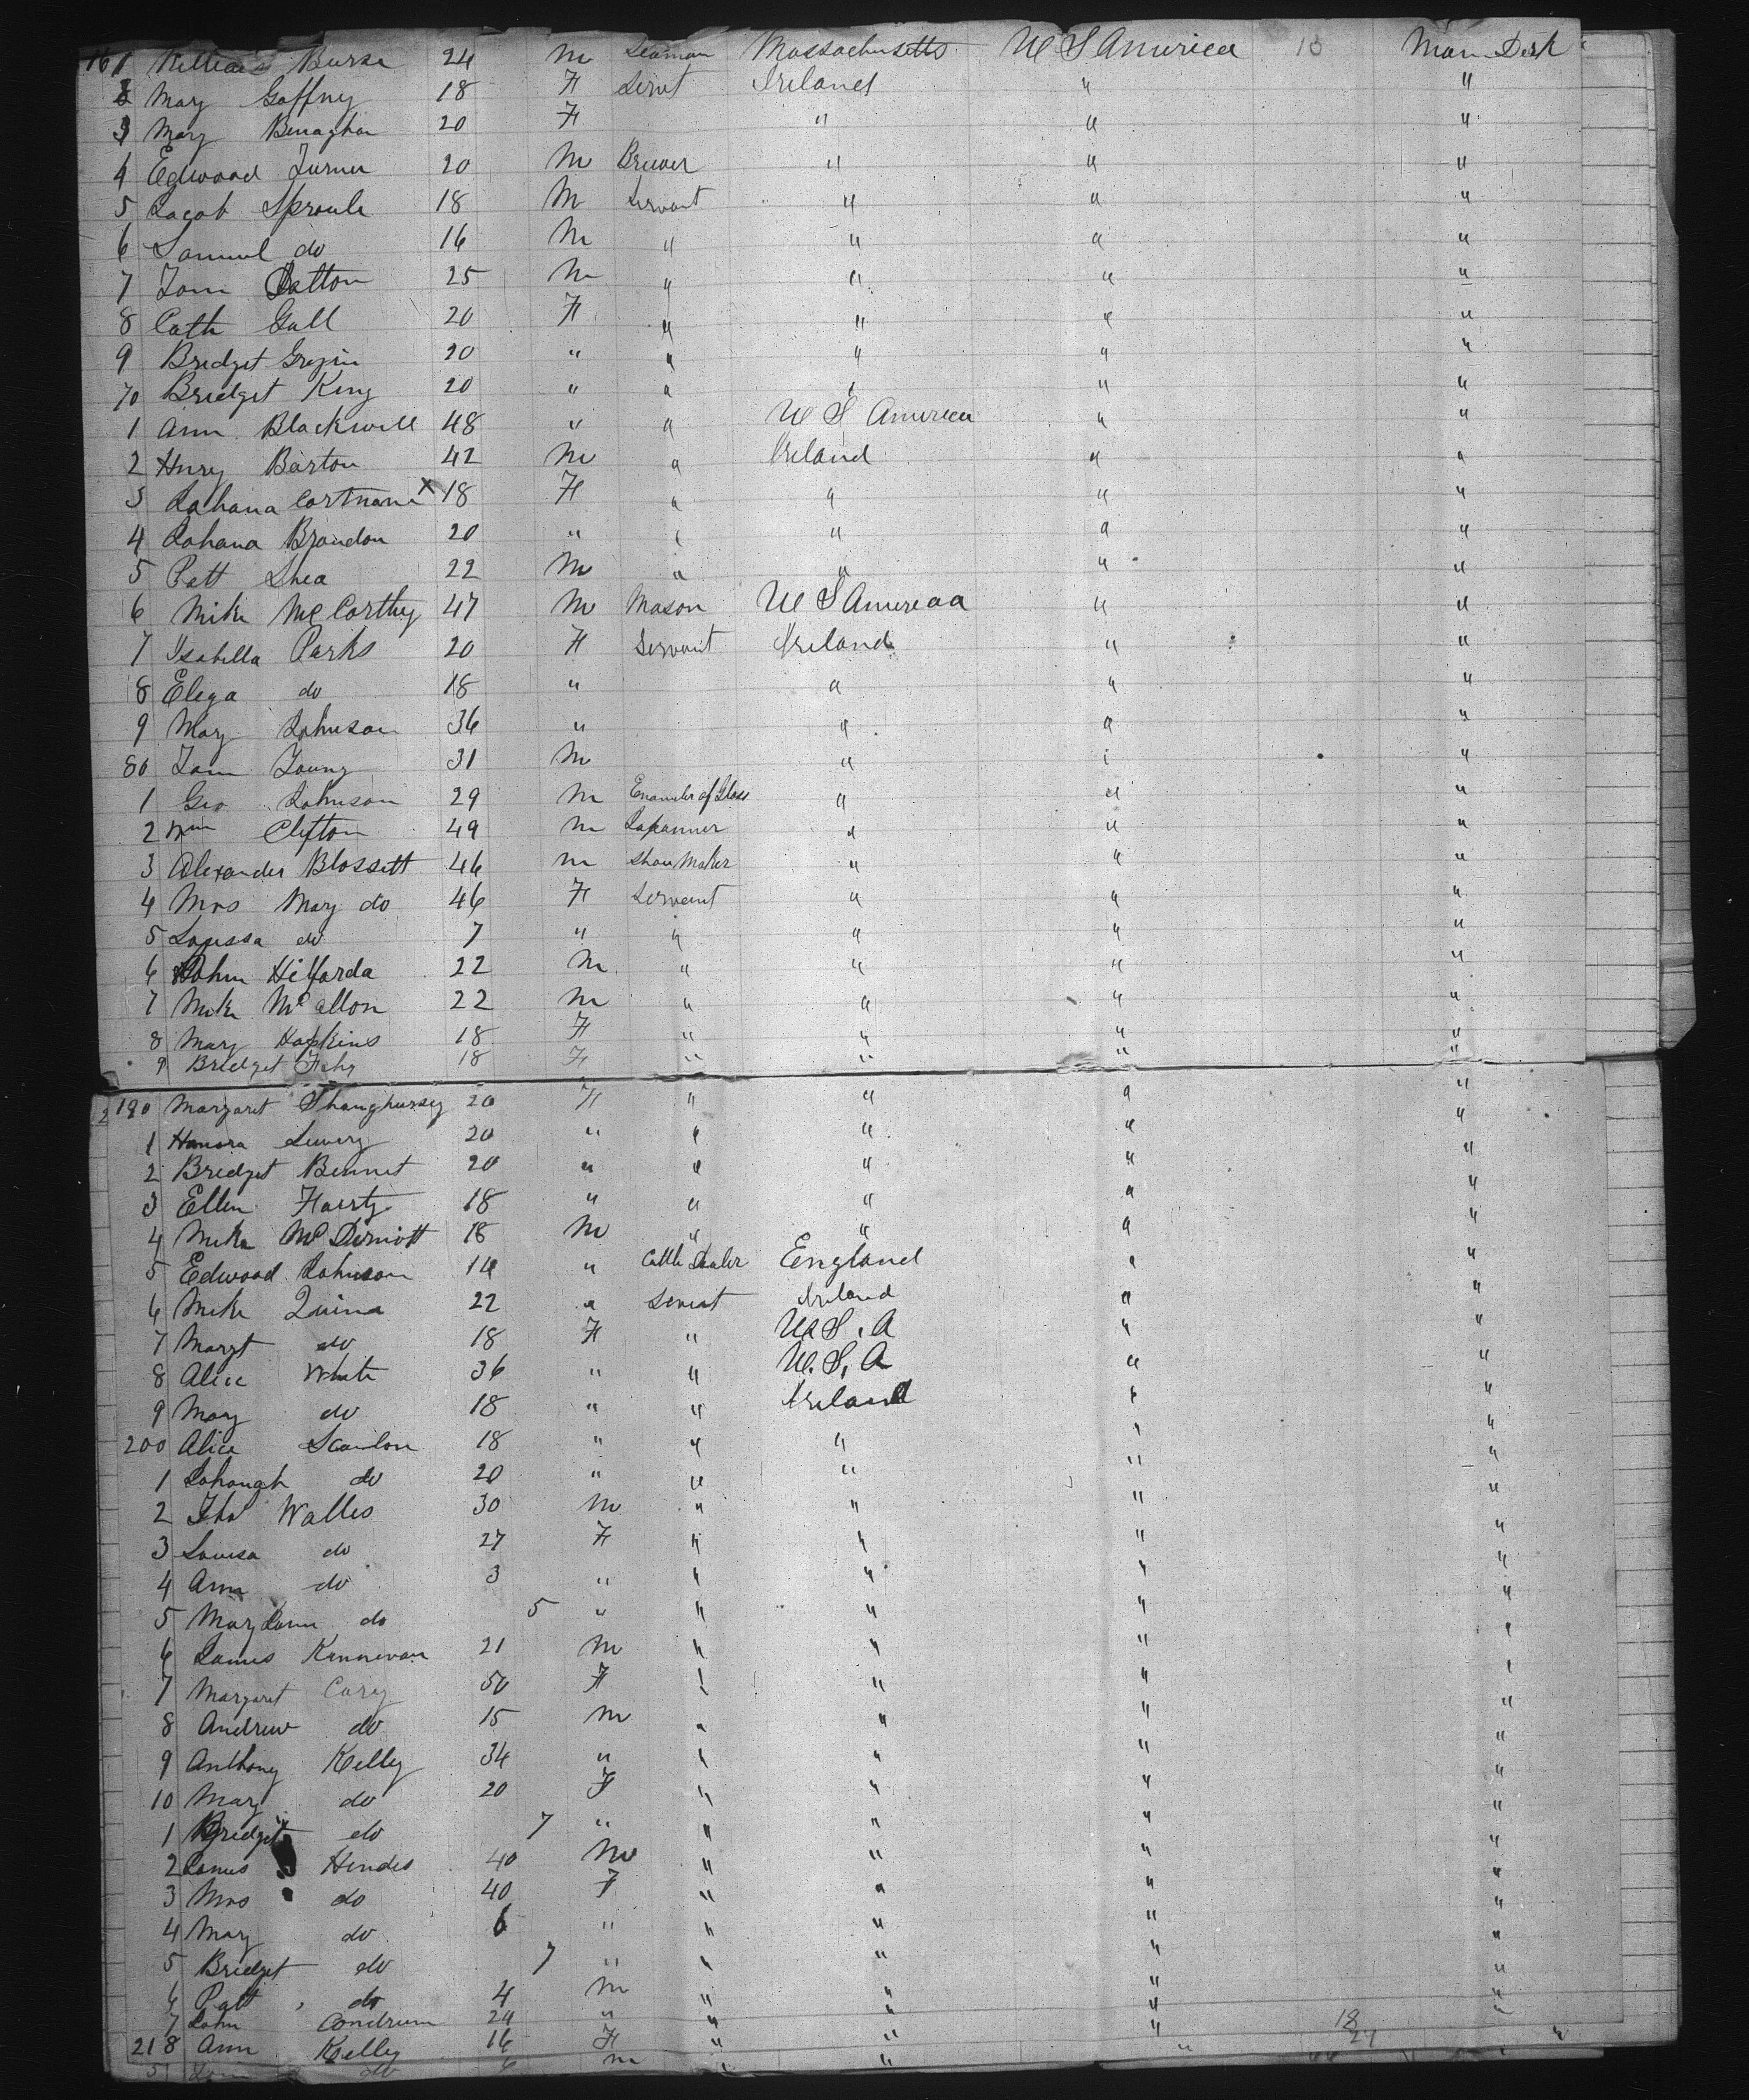 161 William Burse 24 M Seaman Massachusetts U S America 10 Main Deck
2 Mary Gaffny 18 F Servt Ireland " "
3 Mary Benaghan 20 F " " "
4 Edwood Turner 20 M Brewer " " "
5 Jacob Sproule 18 M Servant " " "
6 Samuel do 16 M " " " "
7 Tom Patton 25 M " " " "
8 Cath Gall 20 F " " " "
9 Bridget 20 " " " " "
70 Bridget King 20 " " " " "
1 Ann Blackwell 48 " " U S America " "
2 Hnry Barton 42 M " Ireland " "
3 Johana Cortnane x 18 F " " " "
4 Johana Brandon 20 " " " " "
5 Patt Shea 22 M " " " "
6 Mike McCarthy 47 M Mason U S America " "
7 Isabella Parks 20 F Servant Ireland " "
8 Eleza do 18 " " " "
9 Mary Johnson 36 " " " "
80 Tom Young 31 M " " "
1 Geo Johnson 29 M Enameler of Glass " " "
2 Wm Clifton 49 M Japanner " " "
3 Alexander Blossett 46 M Shoe Maker " " "
4 Mrs Mary do 46 F Servant " " "
5 do 7 " " " " "
6 John Hilfarda 22 M " " " "
7 Mike McAllon 22 M " " " "
8 Mary Hopkins 18 F " " " "
9 Bridget Fahy 18 F " " " "
190 Margaret Shanghursey 20 F " " " "
1 Honora 20 " " " " "
2 Bridget Bennet 20 " " " " "
3 Ellen 18 " " " " "
4 Mike McDermott 18 M " " " "
5 Edwood Johnson 14 " Cattle Dealer England " "
6 Mike Quina 22 " Servat Ireland " "
7 Margt do 18 F " U.S.A " "
8 Alice White 36 " " U.S.A " "
9 Mary do 18 " " Ireland " "
200 Alice Scanlon 18 " " " " "
1 Johanah do 20 " " " " "
2 Tho Walles 30 M " " " "
3 Louisa do 27 F " " " "
4 Ann do 3 " " " " "
5 Mary Jann do 5 " " " " "
6 James Kennevan 21 M " " " "
7 Margaret Cary 50 F " " " "
8 Andrew do 15 M " " " "
9 Anthony Kelly 34 " " " " "
10 Mary do 20 F " " " "
1 Bridget do 7 " " " " "
2 James Hendes 40 M " " " "
3 Mrs do 40 F " " " "
4 Mary do 6 " " " " "
5 Bridget do 7 " " " " "
6 Patt do 4 M " " " "
7 John Condrum 24 " " " " "
218 Ann Kelly 16 F " " " 18 27 "
do M " " "